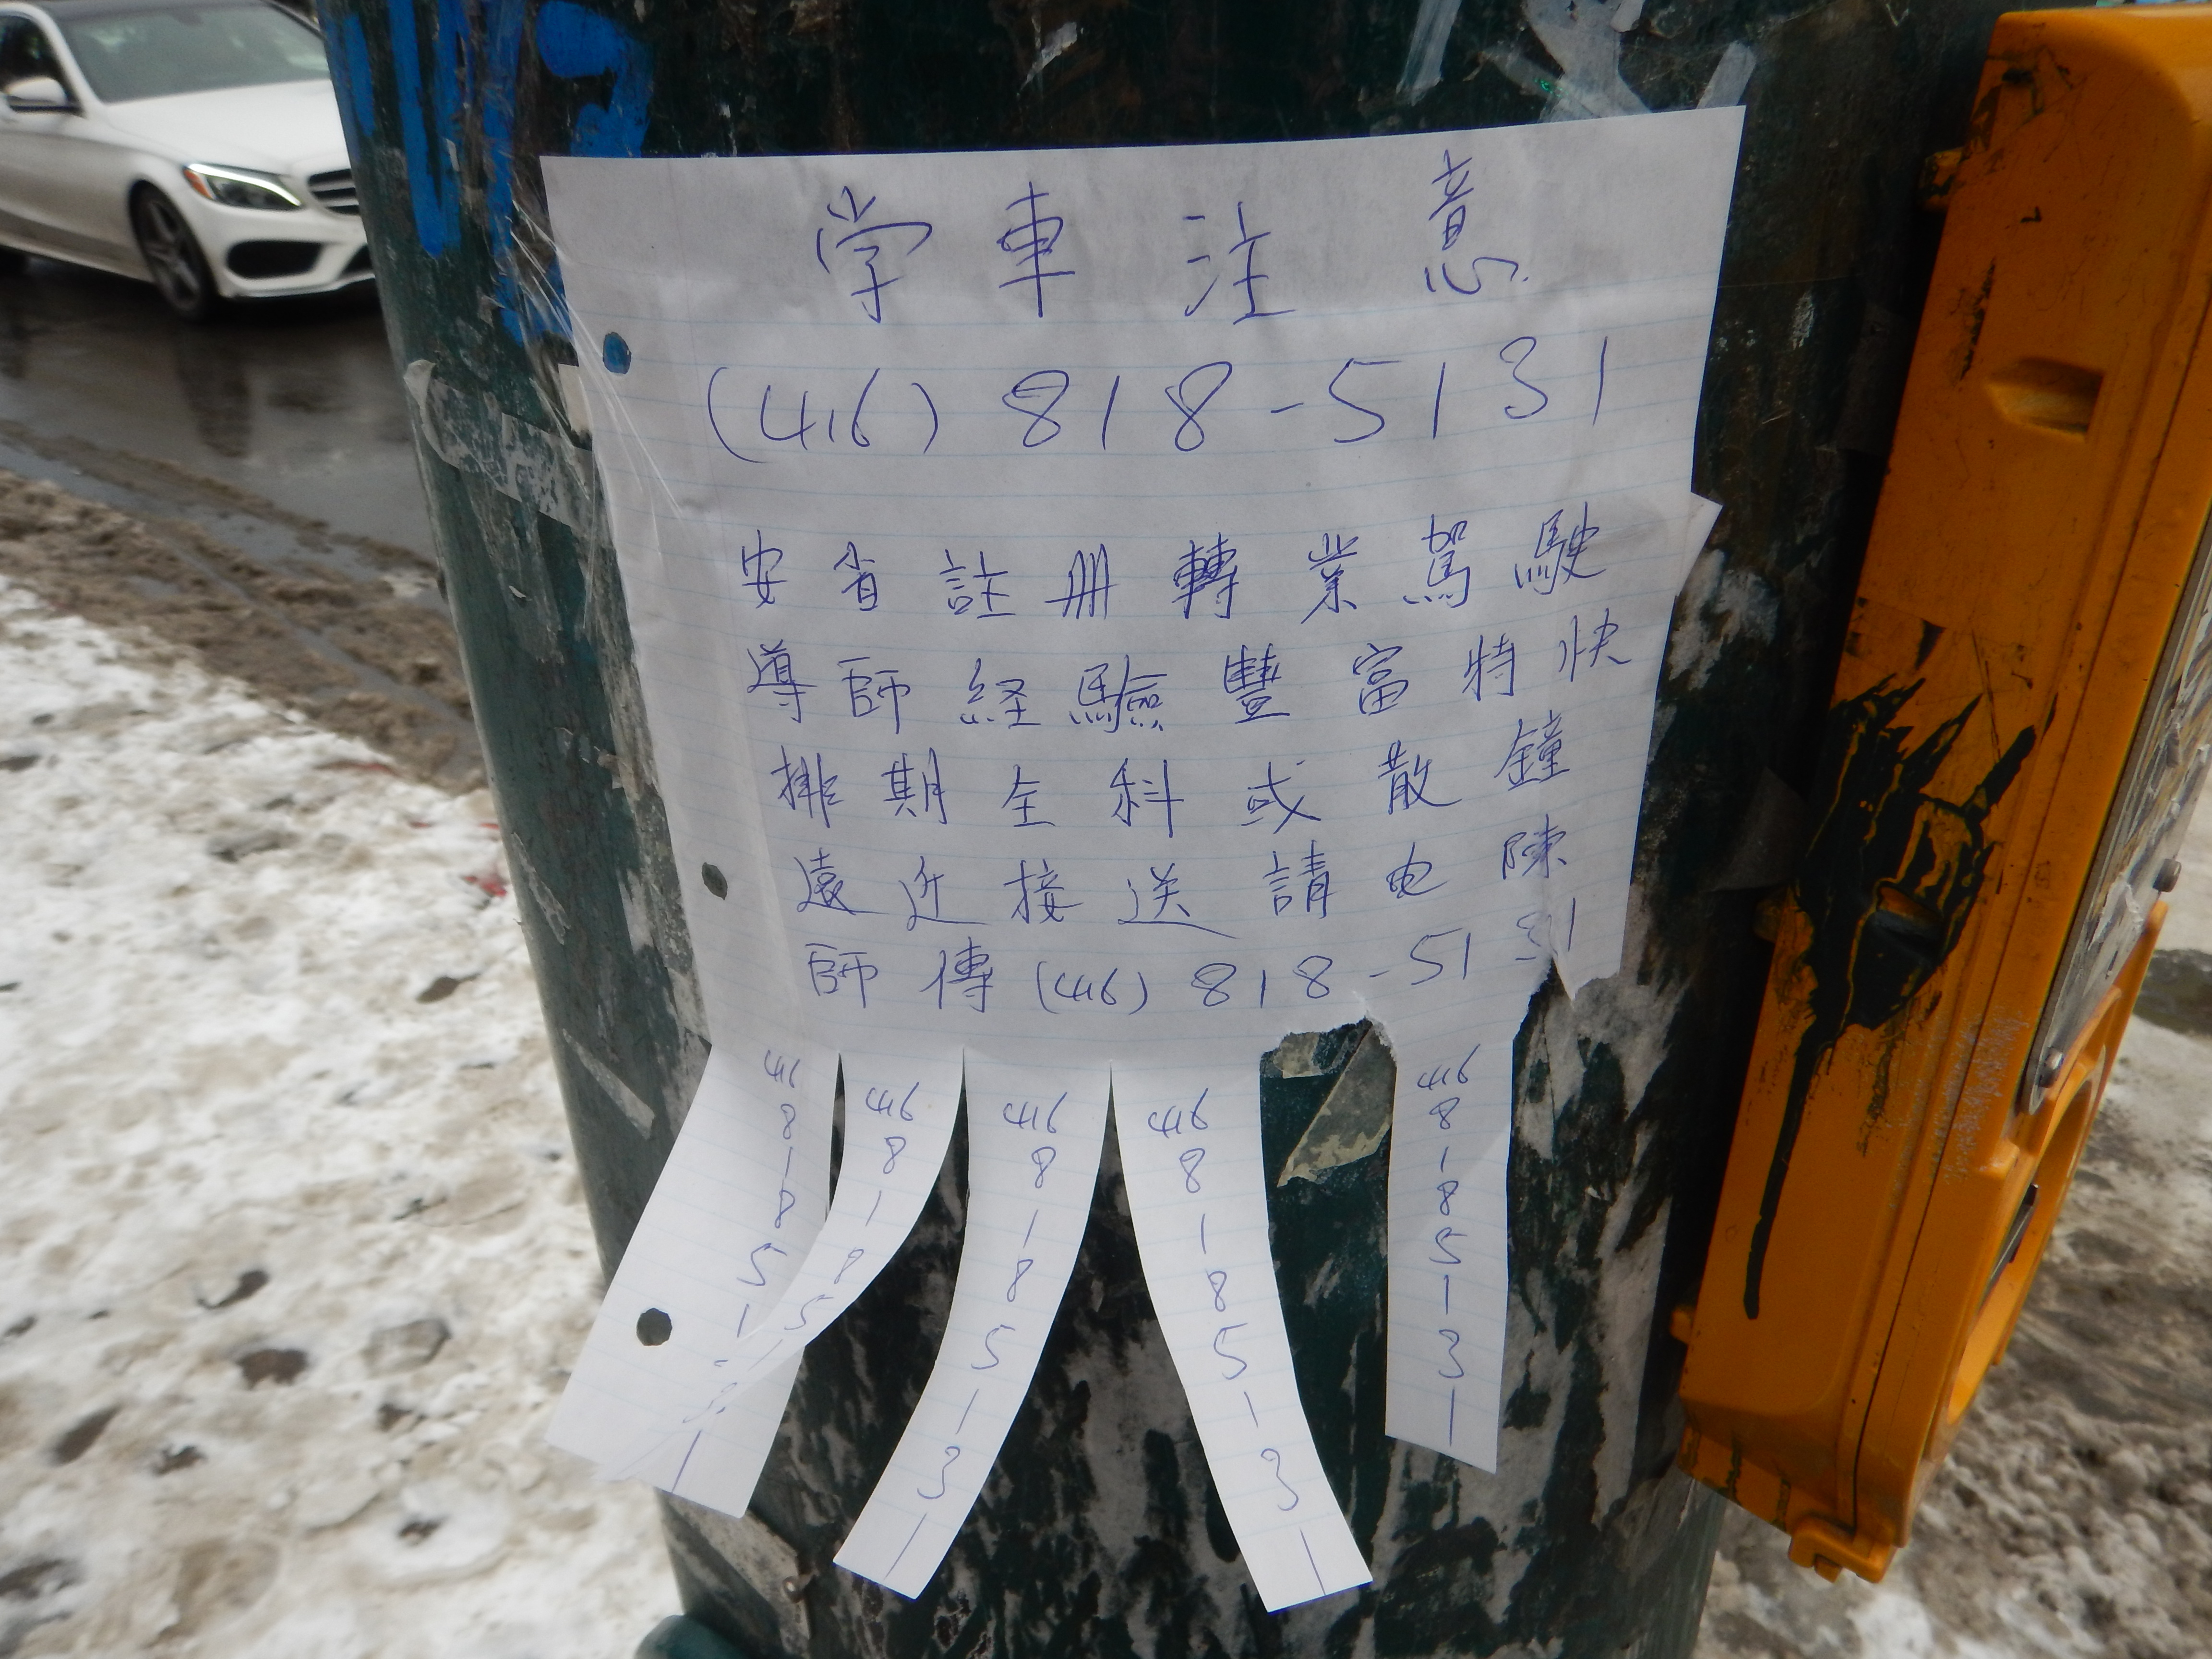 学車注意
(416) 818-5131
安省註册轉業駕駛
導師経驗豐富特快
排期全科或散鐘
遠近接送請电陳
師傅(416) 818-5131
416 8 1 8 5 1 3 1
416 8 1 8 5 1
416 8 1 8 5 1 3 1
416 8 1 8 5 1 3 1
416 8 1 8 5 1 3 1